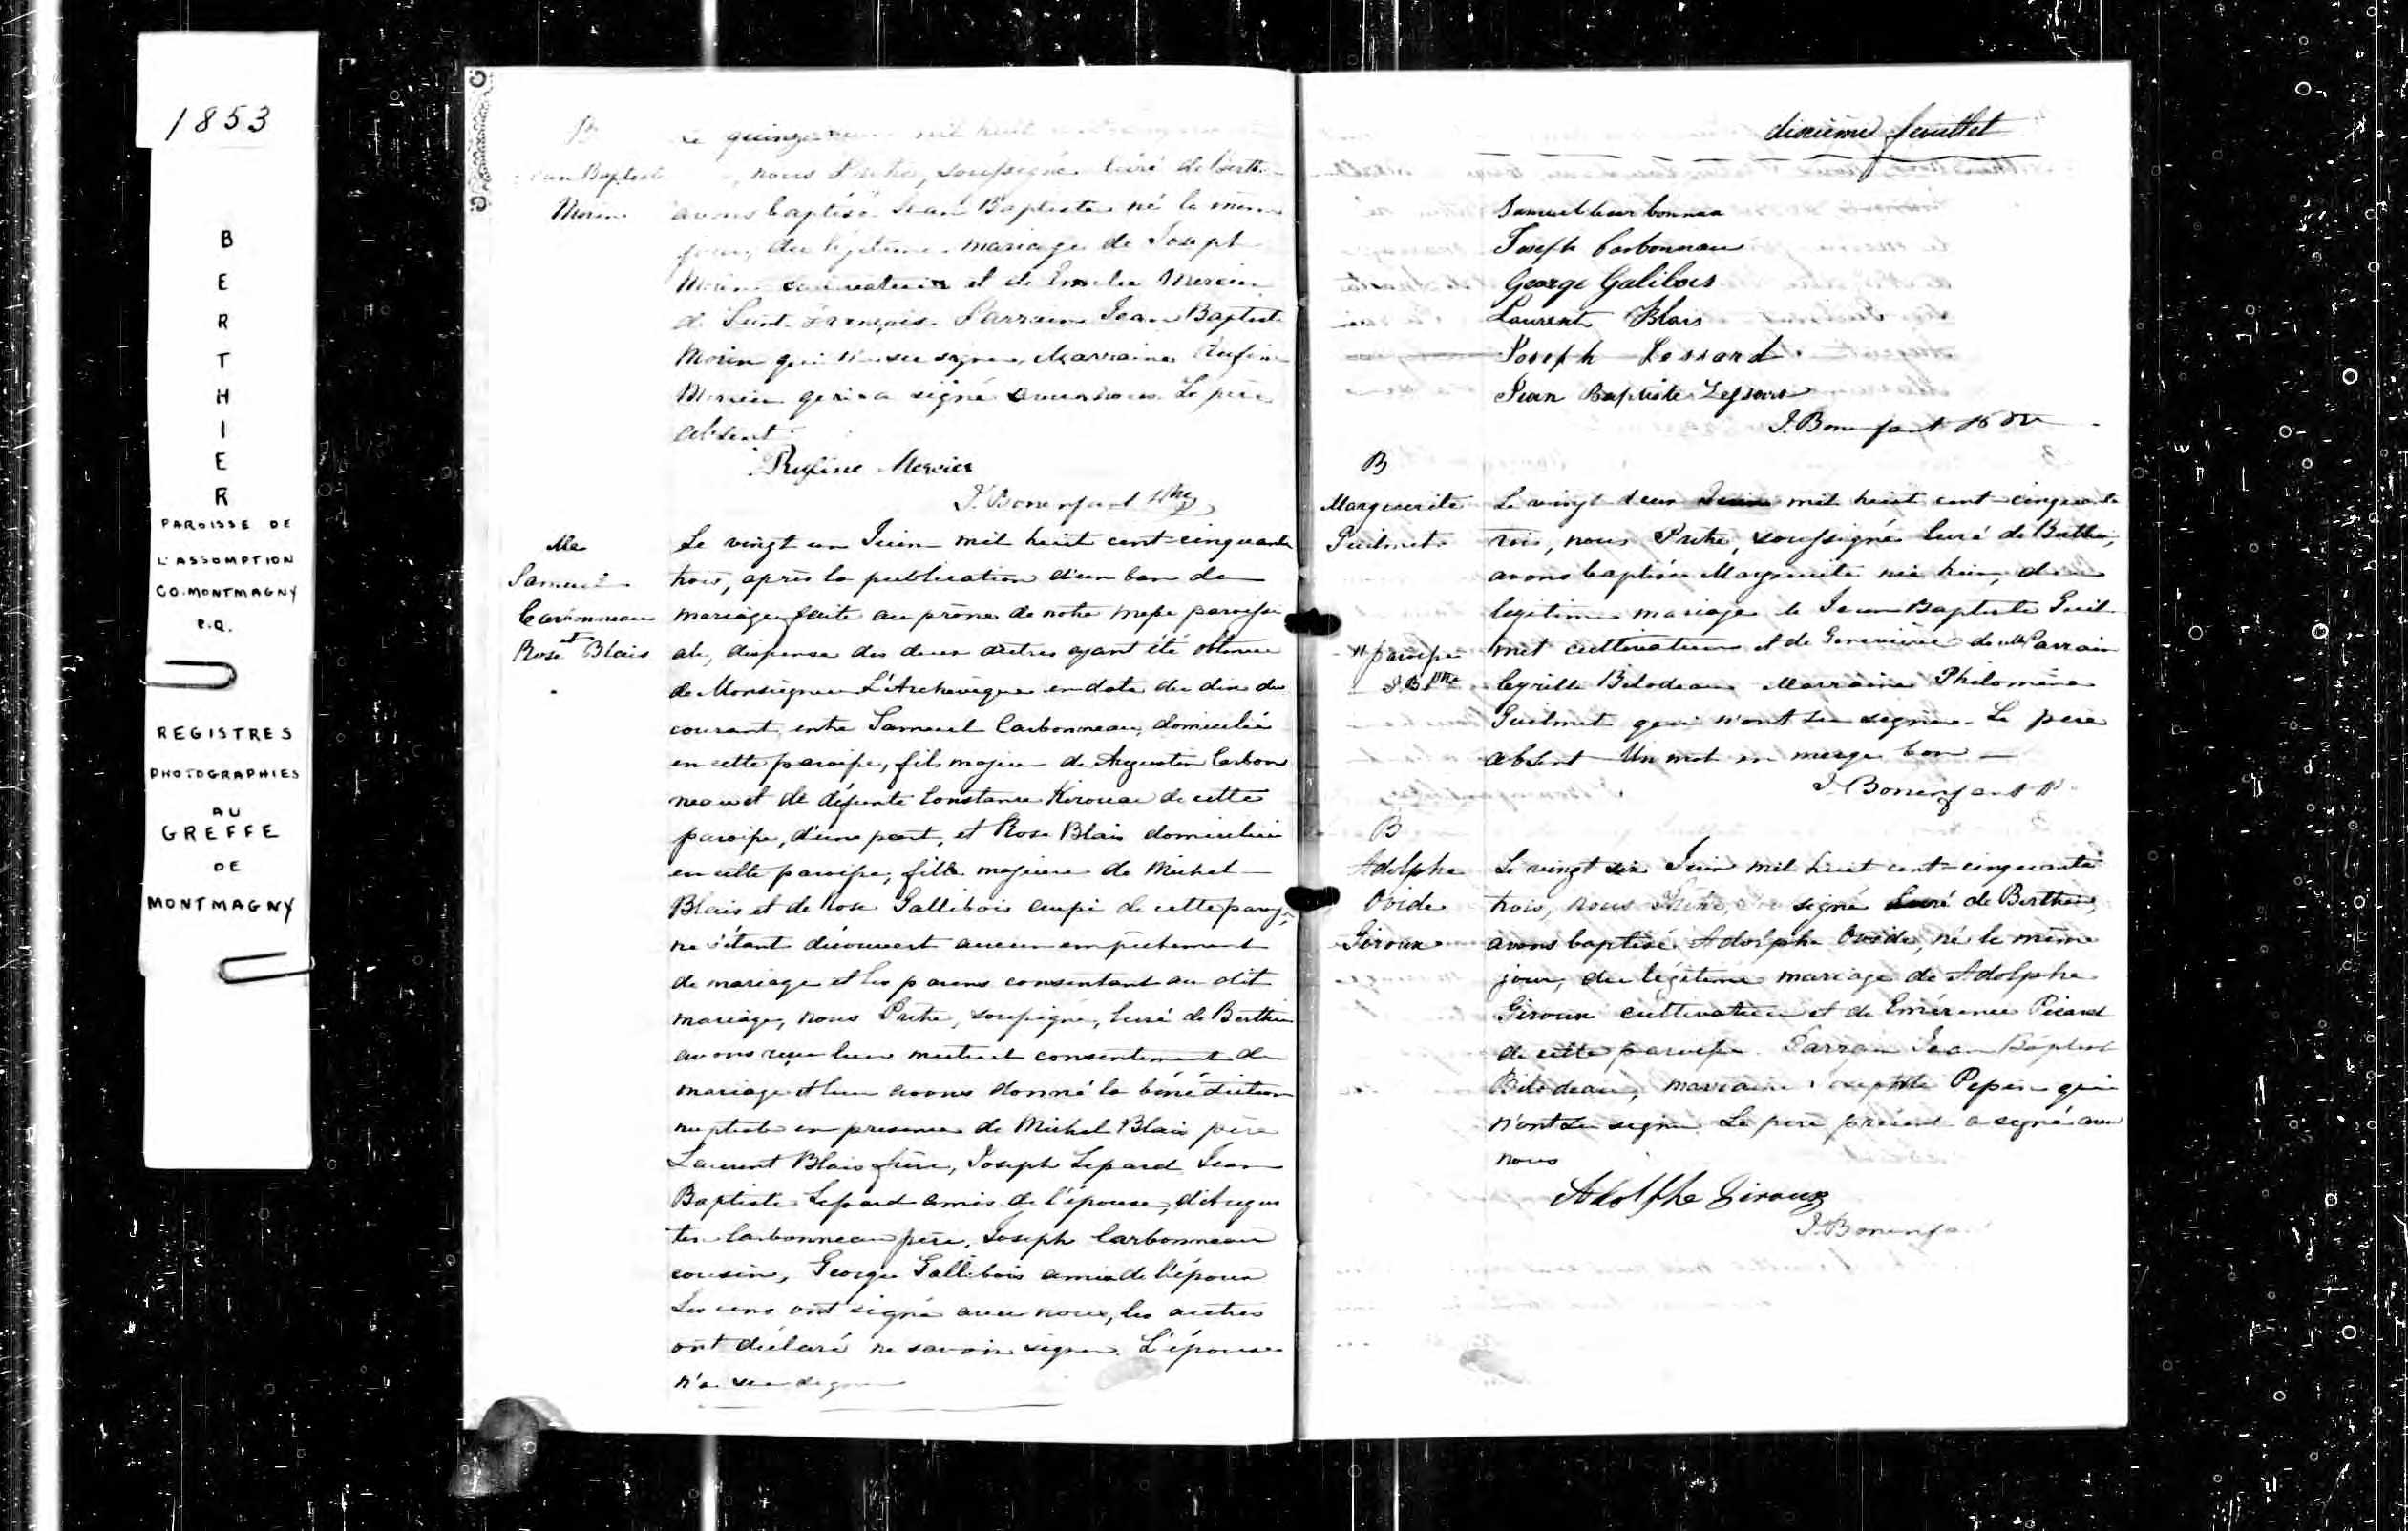 1853
B
E
R
T
H
I
E
R
PAROISSE DE
L'ASSOMPTION
CO. MONTMAGNY
P.Q.
REGISTRES
PHOTOGRAPHIES
AU
GREFFE
DE
MONTMAGNY
B
Jean Baptiste
Morin
Le quinze mil huit
, nous Prêtre, soussigné Curé de Berth
avons baptisé Jean Baptiste né le même
jour, du légitime mariage de Joseph
Morin cultivateur et de Emelie Mercier
de Saint François. Parrain Jean Baptiste
Morin qui n'a su signer, Marraine Rufine
Mercier qui a signé avec nous. Le père
absent.
Rufine Mercier
J. Bonenfant Ptre
M
Samuel
Carbonneau
et
Rose Blais
Le vingt un Juin mil huit cent-cinquante
trois, après la publication d'un ban de
mariage faite au prône de notre messe paroissi
ale, dispense des deux autres ayant été obtenue
de Monseigneur L'Archevêque en date du dix du
courant, entre Samuel Carbonneau, domicilié
en cette paroisse, fils majeur de Augustin Carbon
neau et de défunte Constance Kirouac de cette
paroisse, d'une part, et Rose Blais domiciliée
en cette paroisse, fille majeure de Michel
Blais et de Rose Gallibois aussi de cette paroisse
ne s'étant découvert aucun empêchement
de mariage et les parens consentant au dit
mariage, nous Prêtre, soussigné, Curé de Berthier
avons reçu leur mutuel consentement de
mariage et leur avons donné la bénédiction
nuptiale en présence de Michel Blais père
Laurent Blais frère, Joseph Lessard Jean
Baptiste Lessard amis de l'épouse, d'Augus
tin Carbonneau père, Joseph Carbonneau
cousin, George Gallibois amis de l'époux
Les uns ont signé avec nous, les autres
ont déclaré ne savoir signer. L'épouse
n'a su signer
dixième feuillet
Samuel Carbonnea
Joseph Carbonneau
George Galibois
Laurent Blais
Joseph Lessard
Jean Baptiste Lessard
J. Bonenfant Ptre
B
Marguerite
Guilmet
Le vingt deux Juin mil huit cent-cinquante
trois, nous Prêtre, soussigné Curé de Berthier,
avons baptisée Marguerite née hier, du
legitime mariage de Jean Baptiste Guil
met cultivateur et de Geneviève de cette Parrain
Cyrille Bilodeau Marraine Philomène
Guilmet qui n'ont su signer. Le père
absent Un mot en marge bon
paroisse
J. B. Ptre
J. Bonenfant Ptre
B
Adolphe
Ovide
Giroux
Le vingt six Juin mil huit cent-cinquante
trois, nous Prêtre, signé Curé de Berthier,
avons baptisé Adolphe Ovide, né le même
jour, du légitime mariage de Adolphe
Giroux cultivateur et de Emérence Picard
de cette paroisse. Parrain Jean Baptiste
Bilodeau, marraine Josephte Pepin qui
n'ont su signer. Le père présent a signé avec
nous
Adolphe Giroux
J. Bonenfa